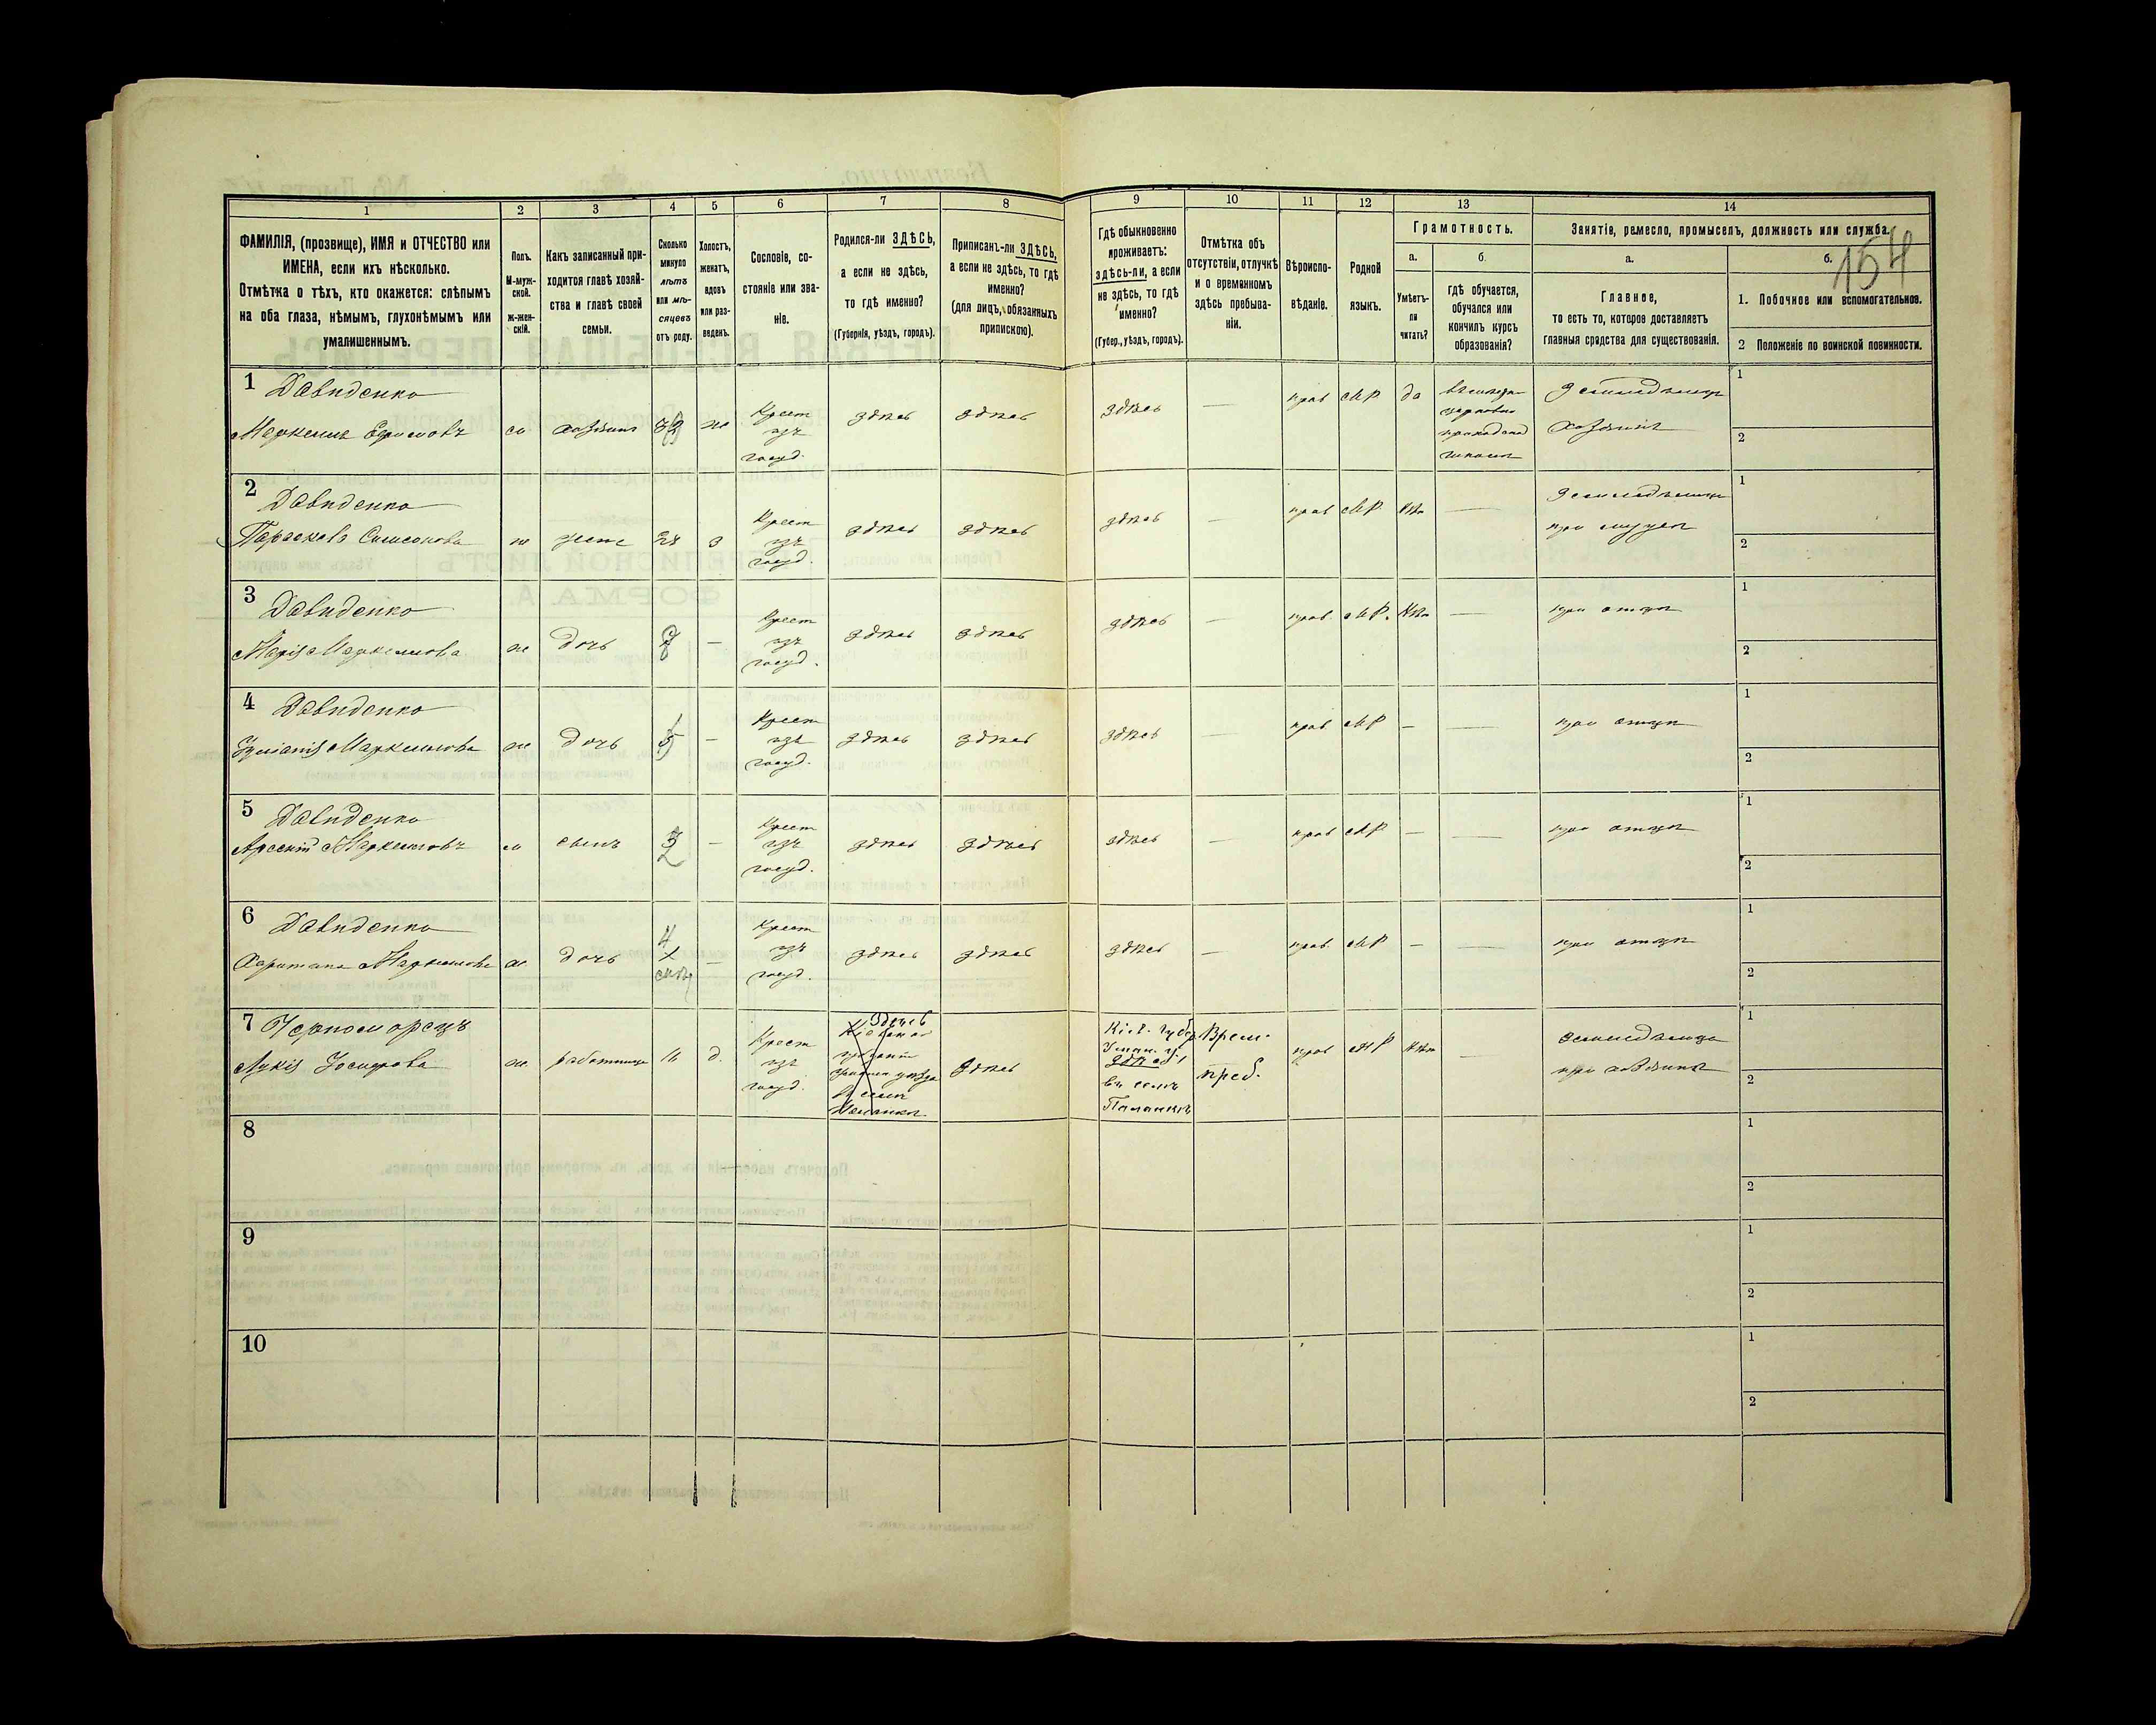 154
1
2
3
4
5
6
7
8
9
10
11
12
13
14
ФАМИЛІЯ, (прозвище), ИМЯ и ОТЧЕСТВО или
ИМЕНА, если ихъ нѣсколько.
Отмѣтка о тѣхъ, кто окажется: слѣпымъ
на оба глаза, нѣмымъ, глухонѣмымъ или
умалишеннымъ.
Полъ.
М-муж-
ской.
Ж-жен-
скій.
Какъ записанный при-
ходится главѣ хозяй-
ства и главѣ своей
семьи.
Сколько
минуло
лѣтъ
или мѣ-
сяцевъ
отъ роду.
Холостъ,
женатъ,
вдовъ
или раз-
веденъ.
Сословіе, со-
стояніе или зва-
ніе.
Родился-ли ЗДѢСЬ,
а если не здѣсь,
то гдѣ именно?
(Губернія, уѣздъ, городъ).
Приписанъ-ли ЗДѢСЬ,
а если не здѣсь, то гдѣ
именно?
(для лицъ, обязанныхъ
припискою).
Гдѣ обыкновенно
проживаетъ:
здѣсь-ли, а если
не здѣсь, то гдѣ
именно?
(Губер., уѣздъ, городъ).
Отмѣтка объ
отсутствіи, отлучкѣ
и о временномъ
здѣсь пребыва-
ніи.
Вѣроиспо-
вѣданіе.
Родной
языкъ.
Грамотность.
а.
Умѣетъ-
ли
читать?
б.
гдѣ обучается,
обучался или
кончилъ курсъ
образованія?
Занятіе, ремесло, промыселъ, должность или служба.
а.
Главное,
то есть то, которое доставляетъ
главныя средства для существованія.
б.
1. Побочное или вспомогательное.
2 Положеніе по воинской повинности.
1 Давиденко
Маркелъ Ефимовъ м хозяинъ ж Крест изъ госуд. здѣсь здѣсь здѣсь — прав МР да
церковно
приходской
школы
Земледѣлецъ
Хозяинъ
1
2
2 Давиденко
Параскева Симеонова ж жена з Крест изъ госуд. здѣсь здѣсь здѣсь — прав МР нѣтъ —
Земледѣлецъ
при мужѣ
1
2
3 Давиденко
Марія Маркелова ж дочь — Крест изъ госуд. здѣсь здѣсь здѣсь — прав. МР. нѣтъ — при отцѣ
1
2
4 Давиденко
Маркелова ж дочь 5 — Крест изъ госуд. здѣсь здѣсь здѣсь — прав МР — — при отцѣ
1
2
5 Давиденко
Арсеній Маркеловъ м сынъ — Крест изъ госуд. здѣсь здѣсь здѣсь — прав МР — — при отцѣ
1
2
6 Давиденко
Харитина Маркелова ж дочь 4 — Крест изъ госуд. здѣсь здѣсь здѣсь — прав. МР — — при отцѣ
1
2
7 Черноморецъ
Лукія Іосифова ж работница 16 д. Крест изъ госуд. Здѣсь здѣсь
Кіев. губер.
Уман. у.
здѣсь
въ селѣ
Паланкѣ
Врем.
преб.
прав МР нѣтъ —
земледѣлецъ
при хозяинѣ
1
2
8
1
2
9
1
2
10
1
2